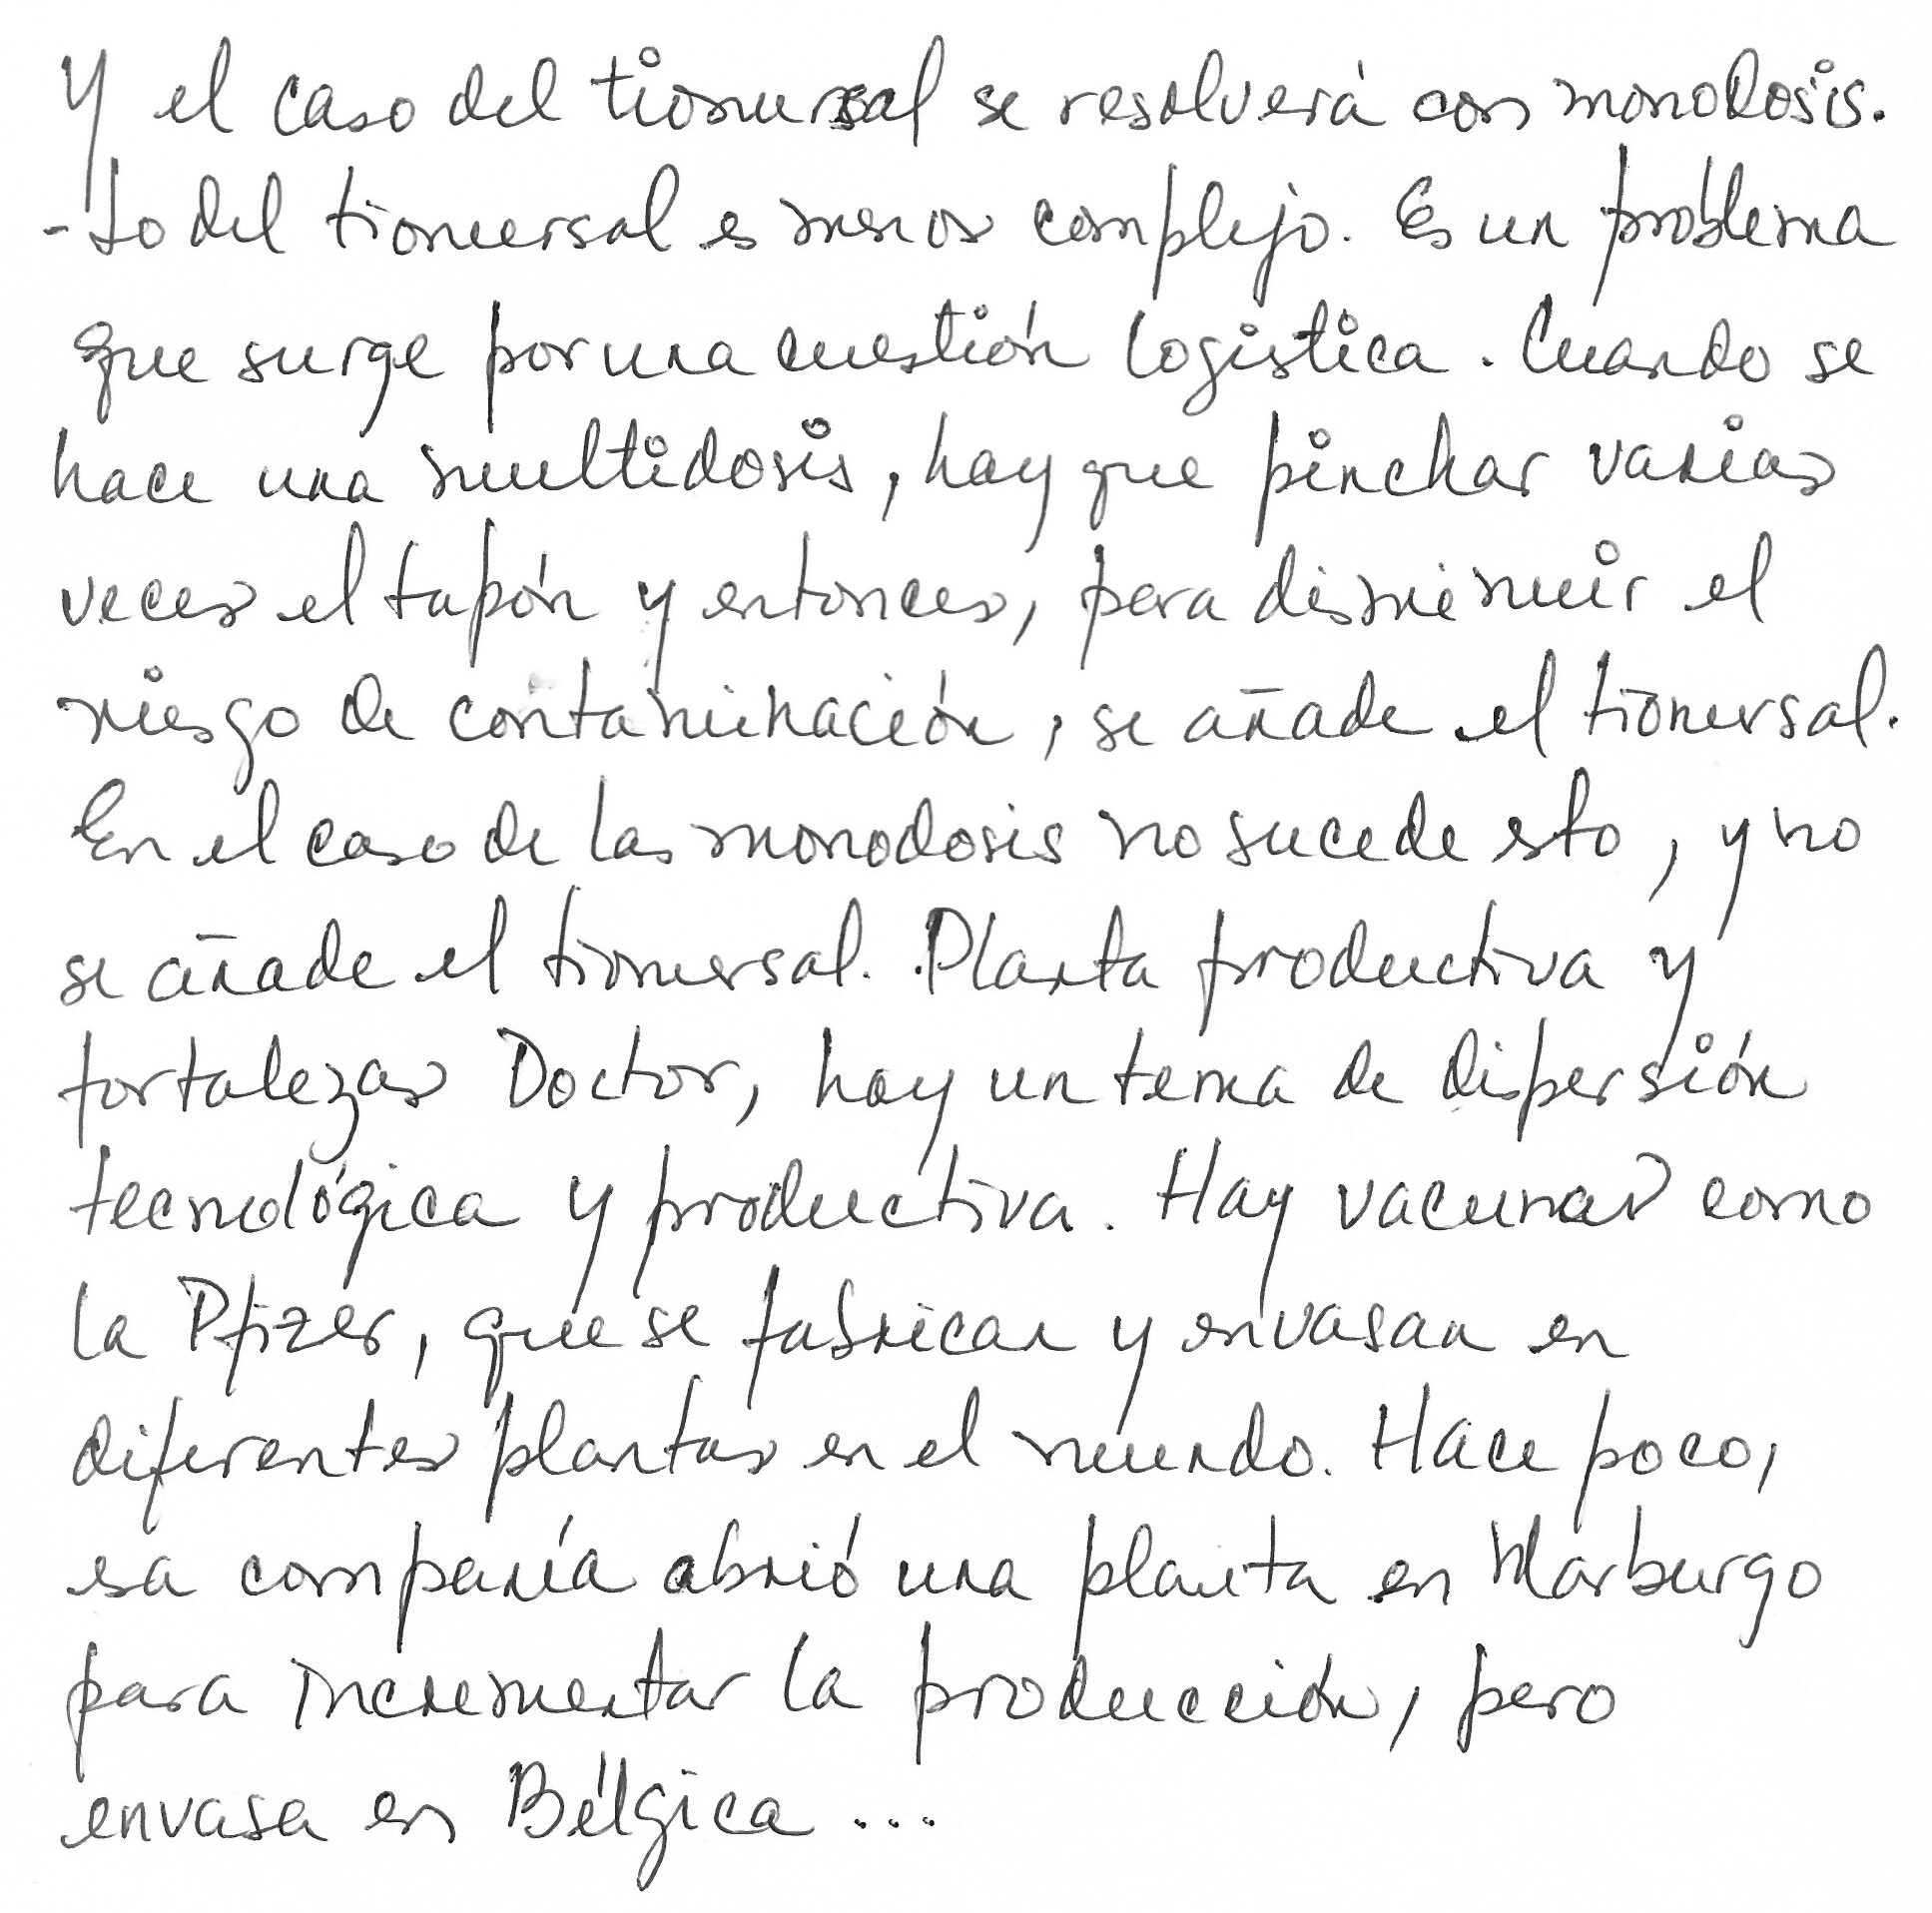 Y el caso del tiomersal se resolverá con monodosis.
- Lo del tiomersal es menos complejo. Es un problema
que surge por una cuestión logística. Cuando se
hace una multidosis, hay que pinchar varias
veces el tapón y entonces, para disminuir el
riesgo de contaminación, se añade el tiomersal.
En el caso de las monodosis no sucede esto, y no
se añade el tiomersal. Planta productiva y
fortalezas Doctor, hay un tema de dispersión
tecnológica y productiva. Hay vacunas como
la Pfizer, que se fabrican y envasan en
diferentes plantas en el mundo. Hace poco,
esa compañía abrió una planta en Marburgo
para incrementar la producción, pero
envasa en Bélgica ...